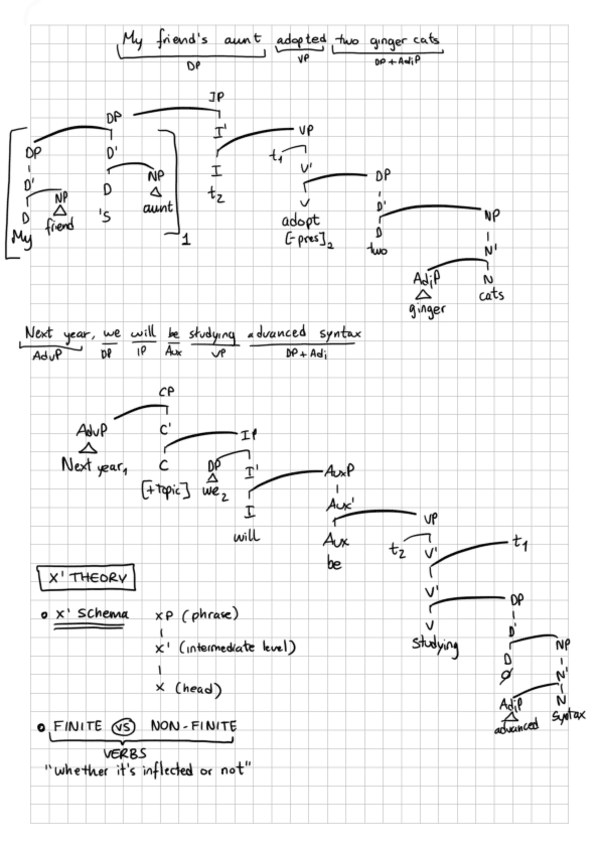 My friend's aunt adopted two ginger cats
DP VP DP + AdjP
IP
DP
I' VP
DP D' t1
D' NP D NP I V' DP
D friend 's aunt t2 V D' NP
My 1 adopt D N'
[-pres]2 two
AdjP N
ginger cats
Next year, we will be studying advanced syntax
AdvP DP IP Aux VP DP + Adj
CP
AdvP C' IP
Next year1 C DP I' AuxP
[+topic] we2 I Aux' VP
will Aux t2 V' t1
be V' DP
V D' NP
studying D N'
Ø AdjP N
advanced syntax
X' THEORY
X' SCHEMA XP (phrase)
X' (intermediate level)
X (head)
FINITE VS NON-FINITE
VERBS
"whether it's inflected or not"